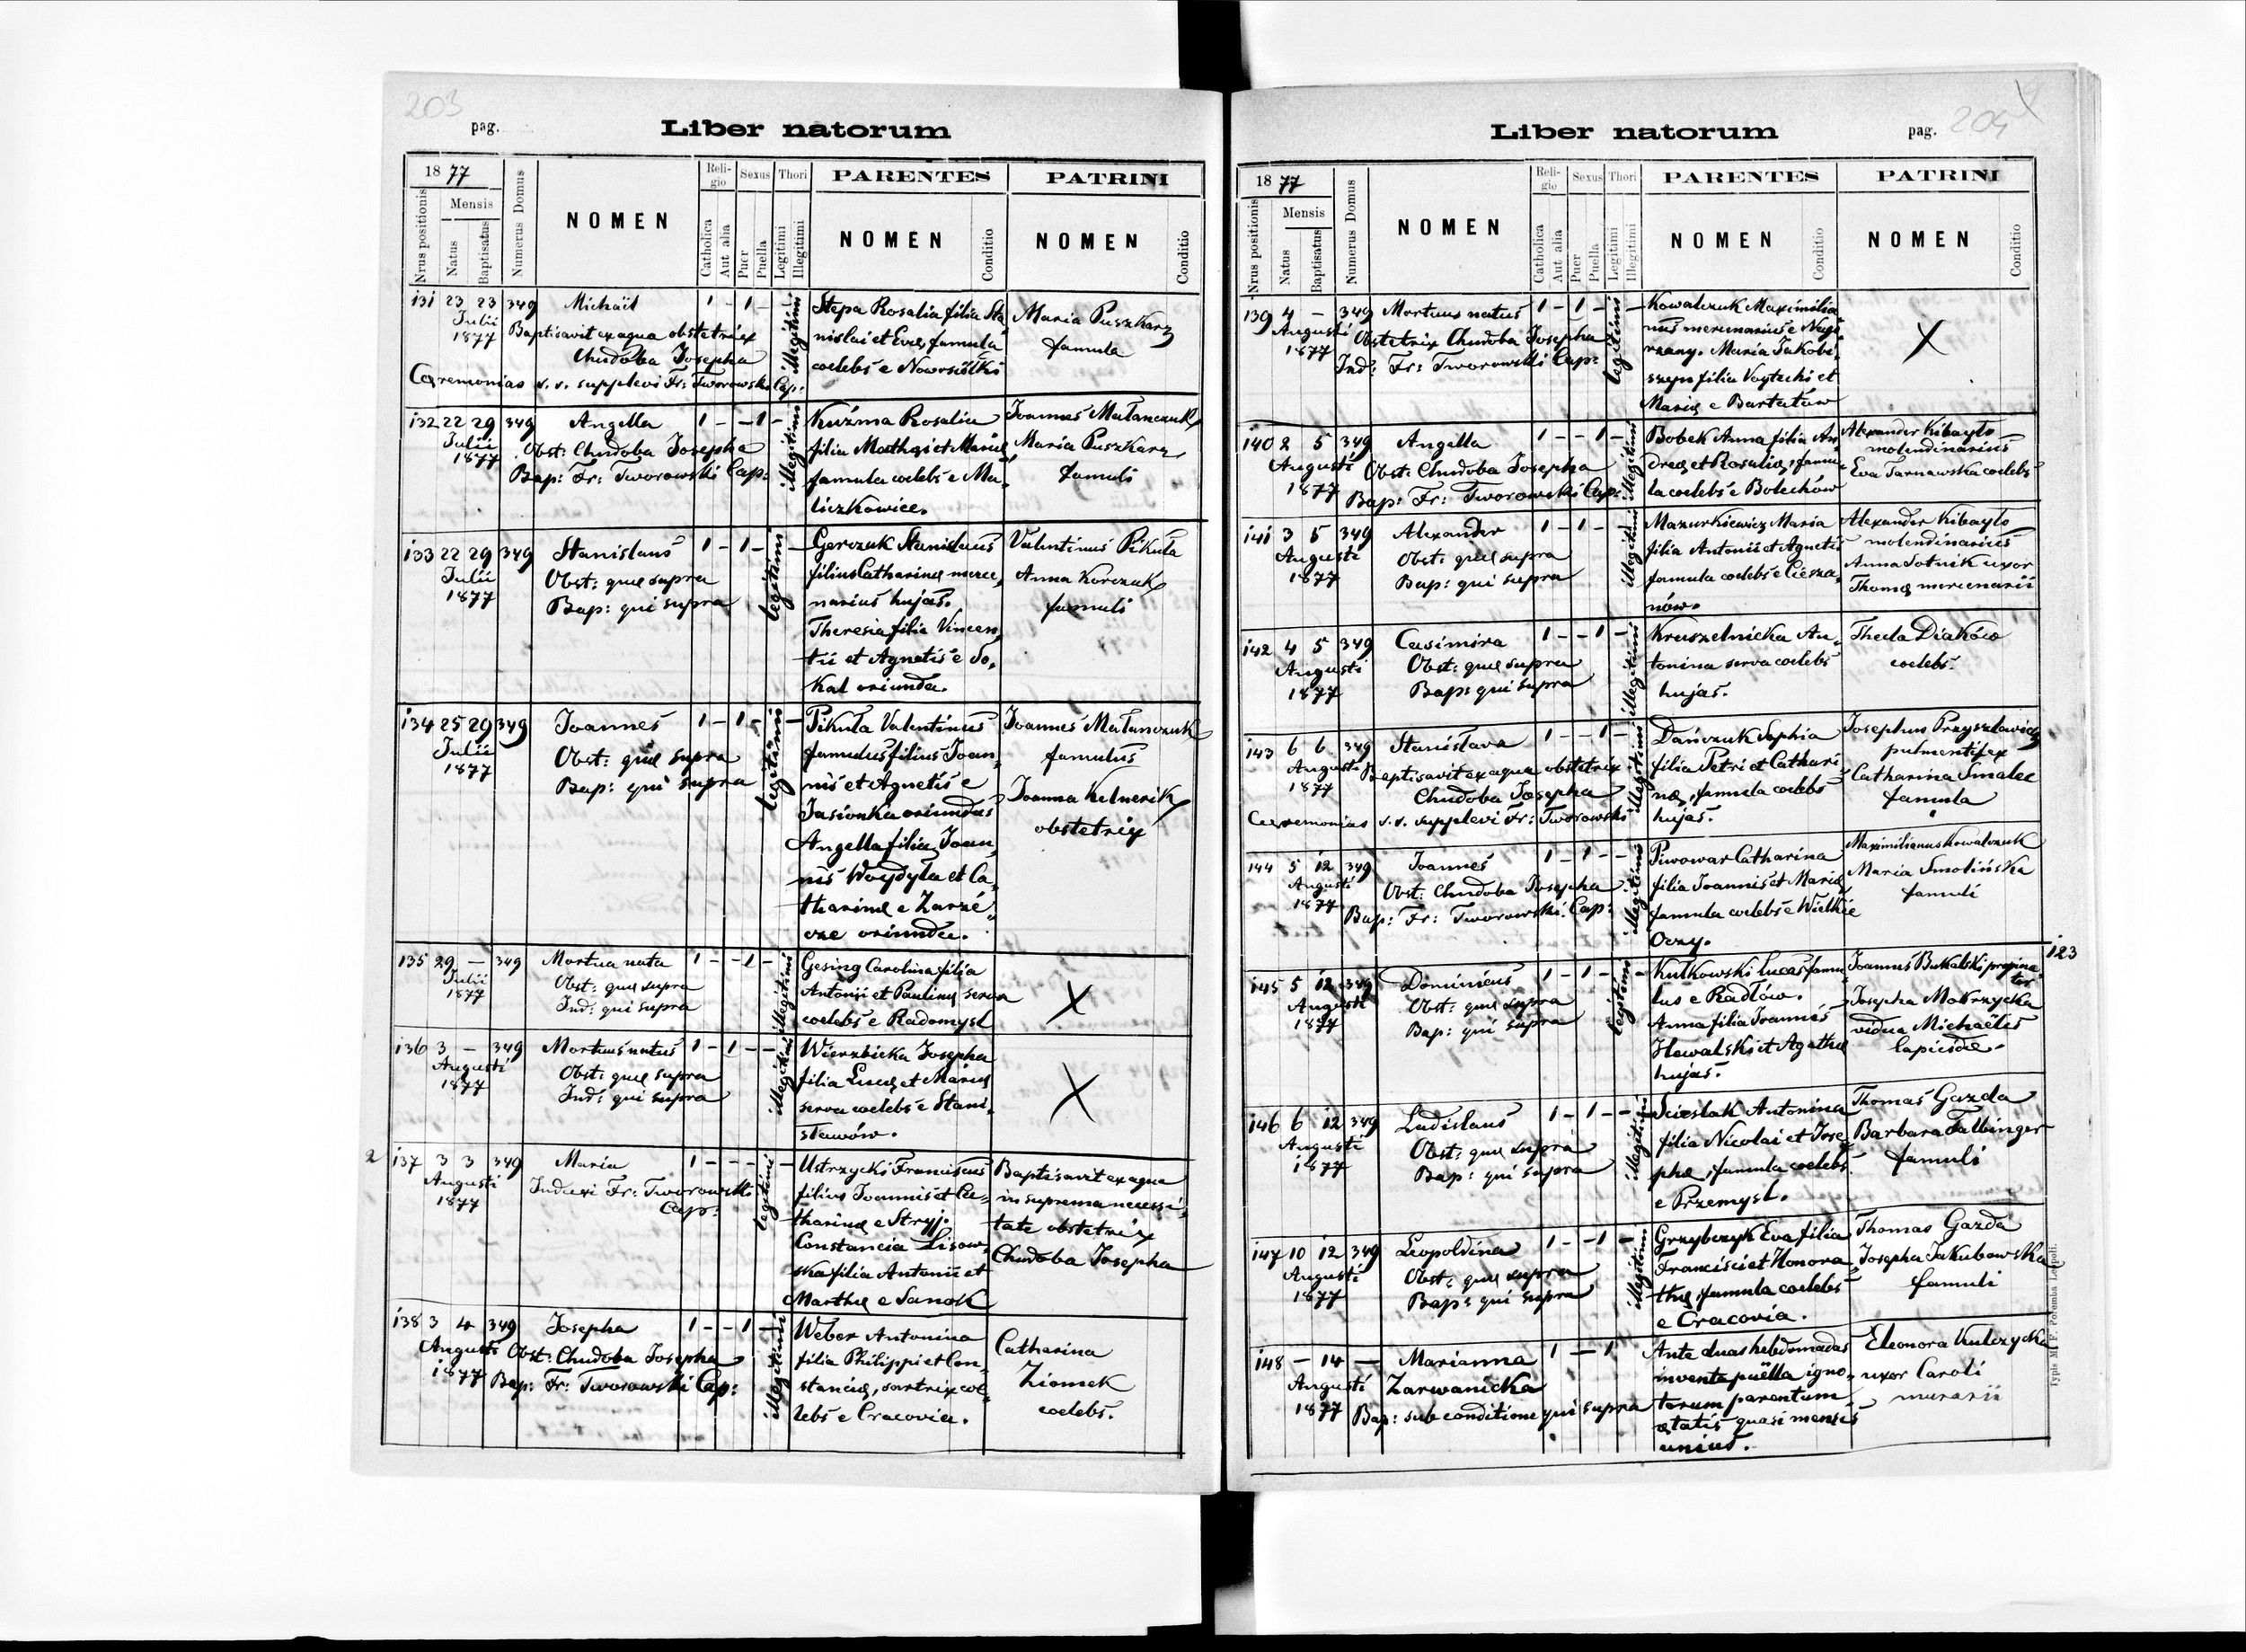 203
pag.
Liber natorum
18 77
Nrus positionis
Mensis
Natus
Baptisatus
Numerus Domus
NOMEN
Religio
Catholica
Aut alia
Sexus
Puer
Puella
Thori
Legitimi
Illegitimi
PARENTES
NOMEN
Conditio
PATRINI
NOMEN
Conditio
131 23 23 349 Michaël 1 - 1 -
Julii
1877
Baptisavit ex aqua obstetrix
Chudoba Josepha
Cæremonias s. s. supplevi Fr: Tworowski Cap:
illegitimi
Stepa Rosalia filia Sta
nislai et Evæ, famula
coelebs e Nowosiółki
Maria Puszkarz
famula
132 22 29 349 Angella 1 - - 1 -
Julii
1877
Obst: Chudoba Josepha
Bap: Fr: Tworowski Cap:
illegitimi
Kuźma Rosalia
filia Mathæi et Mariæ
famula coelebs e Ma
liczkowice.
Joannes Małanczuk
Maria Puszkarz
famuli
133 22 29 349 Stanislaus 1 - 1 - -
Julii
1877
Obst: quæ supra
Bap: qui supra
legitimi
Gerczuk Stanislaus
filius Catharinæ merce
narius hujas.
Theresia filia Vincen
tii et Agnetis e So
kal oriunda.
Valentinus Pikuła
Anna Korczuk
famuli
134 25 29 349 Joannes 1 - 1 - -
Julii
1877
Obst: quæ supra
Bap: qui supra
legitimi
Pikuła Valentinus
famulus filius Joan
nis et Agnetis e
Jasionka oriundus
Angella filia Joan
nis Woydyła et Ca
tharinæ e Zarzé
cze oriunda.
Joannes Małanczuk
famulus
Joanna Kelnerik
obstetrix
135 29 - 349 Mortua nata 1 - - 1 -
Julii
1877
Obst: quæ supra
Ind: qui supra
illegitimi
Gesing Carolina filia
Antonii et Paulinæ serva
coelebs e Radomysl
X
136 3 - 349 Mortuus natus 1 - 1 - -
Augusti
1877
Obst: quæ supra
Ind: qui supra
illegitimi
Wierzbicka Josepha
filia Lucæ et Mariæ
serva coelebs e Stani
sławów.
X
2
137 3 3 349 Maria 1 - - - -
Augusti
1877
Induxi Fr: Tworowski
Cap:
legitimi
Ustrzycki Franciscus
filius Joannis et Ca
tharinæ e Stryj.
Constancia Lisow
ska filia Antonii et
Marthæ e Sanok
Baptisavit ex aqua
in suprema necessi
tate obstetrix
Chudoba Josepha
138 3 4 349 Josepha 1 - - 1 -
Augusti
1877
Obst: Chudoba Josepha
Bap: Fr: Tworowski Cap:
illegitimi
Weber Antonina
filia Philippi et Con
stanciæ, sartrix coe
lebs e Cracovia.
Catharina
Ziomek
coelebs.
204
pag.
Liber natorum
18 77
Nrus positionis
Mensis
Natus
Baptisatus
Numerus Domus
NOMEN
Religio
Catholica
Aut alia
Sexus
Puer
Puella
Thori
Legitimi
Illegitimi
PARENTES
NOMEN
Conditio
PATRINI
NOMEN
Conditio
139 4 - 349 Mortuus natus 1 - 1 - -
Augusti
1877
Obstetrix Chudoba Josepha
Ind: Fr: Tworowski Cap:
legitimi
Kowalczuk Maximilia
nus mercenarius e
Maria Jakobi
szyn filia Voytechi et
Mariæ e Bartatów
X
140 2 5 349 Angella 1 - - 1 -
Augusti
1877
Obst: Chudoba Josepha
Bap: Fr: Tworowski Cap:
illegitimi
Bobek Anna filia An
dreæ et Rosaliæ, famu
la coelebs e Bolechów
Alexander Kibayło
molendinarius
Eva Tarnawska coelebs
141 3 5 349 Alexander 1 - 1 -
Augusti
1877
Obst: quæ supra
Bap: qui supra
illegitimi
Mazurkiewicz Maria
filia Antonii et Agnetis
famula coelebs e Ciesza
nów.
Alexander Kibayło
molendinarius
Anna Sotnik uxor
Thomæ mercenarii
142 4 5 349 Casimira 1 - - 1 -
Augusti
1877
Obst: quæ supra
Bap: qui supra
illegitimi
Kruszelnicka An
tonina serva coelebs
hujas.
Thecla Diaków
coelebs.
143 6 6 349 Stanislava 1 - - 1 -
Augusti
1877
Baptisavit ex aqua obstetrix
Chudoba Josepha
Cæremonias s. s. supplevi Fr: Tworowski
illegitimi
Dańczuk Sophia
filia Petri et Cathari
næ, famula coelebs
hujas.
Josephus Przyszlawicz
pulmentifex
Catharina Smalec
famula
144 5 12 349 Joannes 1 - 1 - -
Augusti
1877
Obst: Chudoba Josepha
Bap: Fr: Tworowski Cap:
illegitimi
Piwowar Catharina
filia Joannis et Mariæ
famula coelebs e Wielkie
Oczy.
Maximilianus Kowalczuk
Maria Smolińska
famuli
123
145 5 12 349 Dominicus 1 - 1 - -
Augusti
1877
Obst: quæ supra
Bap: qui supra
legitimi
Kulkowski Lucas famu
lus e Radłów.
Anna filia Joannis
Kowalski et Agathæ
hujas.
Joannes Bukalski propina
tor
Josepha Mokrzycka
vidua Michaëlis
lapicidæ.
146 6 12 349 Ladislaus 1 - 1 - -
Augusti
1877
Obst: quæ supra
Bap: qui supra
illegitimi
Scieslak Antonina
filia Nicolai et Jose
phæ, famula coelebs
e Przemysl.
Thomas Gazda
Barbara Falbinger
famuli
147 10 12 349 Leopoldina 1 - - 1 -
Augusti
1877
Obst: quæ supra
Bap: qui supra
illegitimi
Grzybczyk Eva filia
Francisci et Honora
thæ, famula coelebs
e Cracovia.
Thomas Gazda
Josepha Jakubowska
famuli
148 - 14 - Marianna 1 - 1
Augusti
1877
Zarwanicka
Bap: sub conditione qui supra
Ante duas hebdomadas
inventa puëlla igno
torum parentum
ætatis quasi mensis
unius.
Eleonora Kulczycka
uxor Caroli
murarii
Typis M. F. Poremba Leopoli.